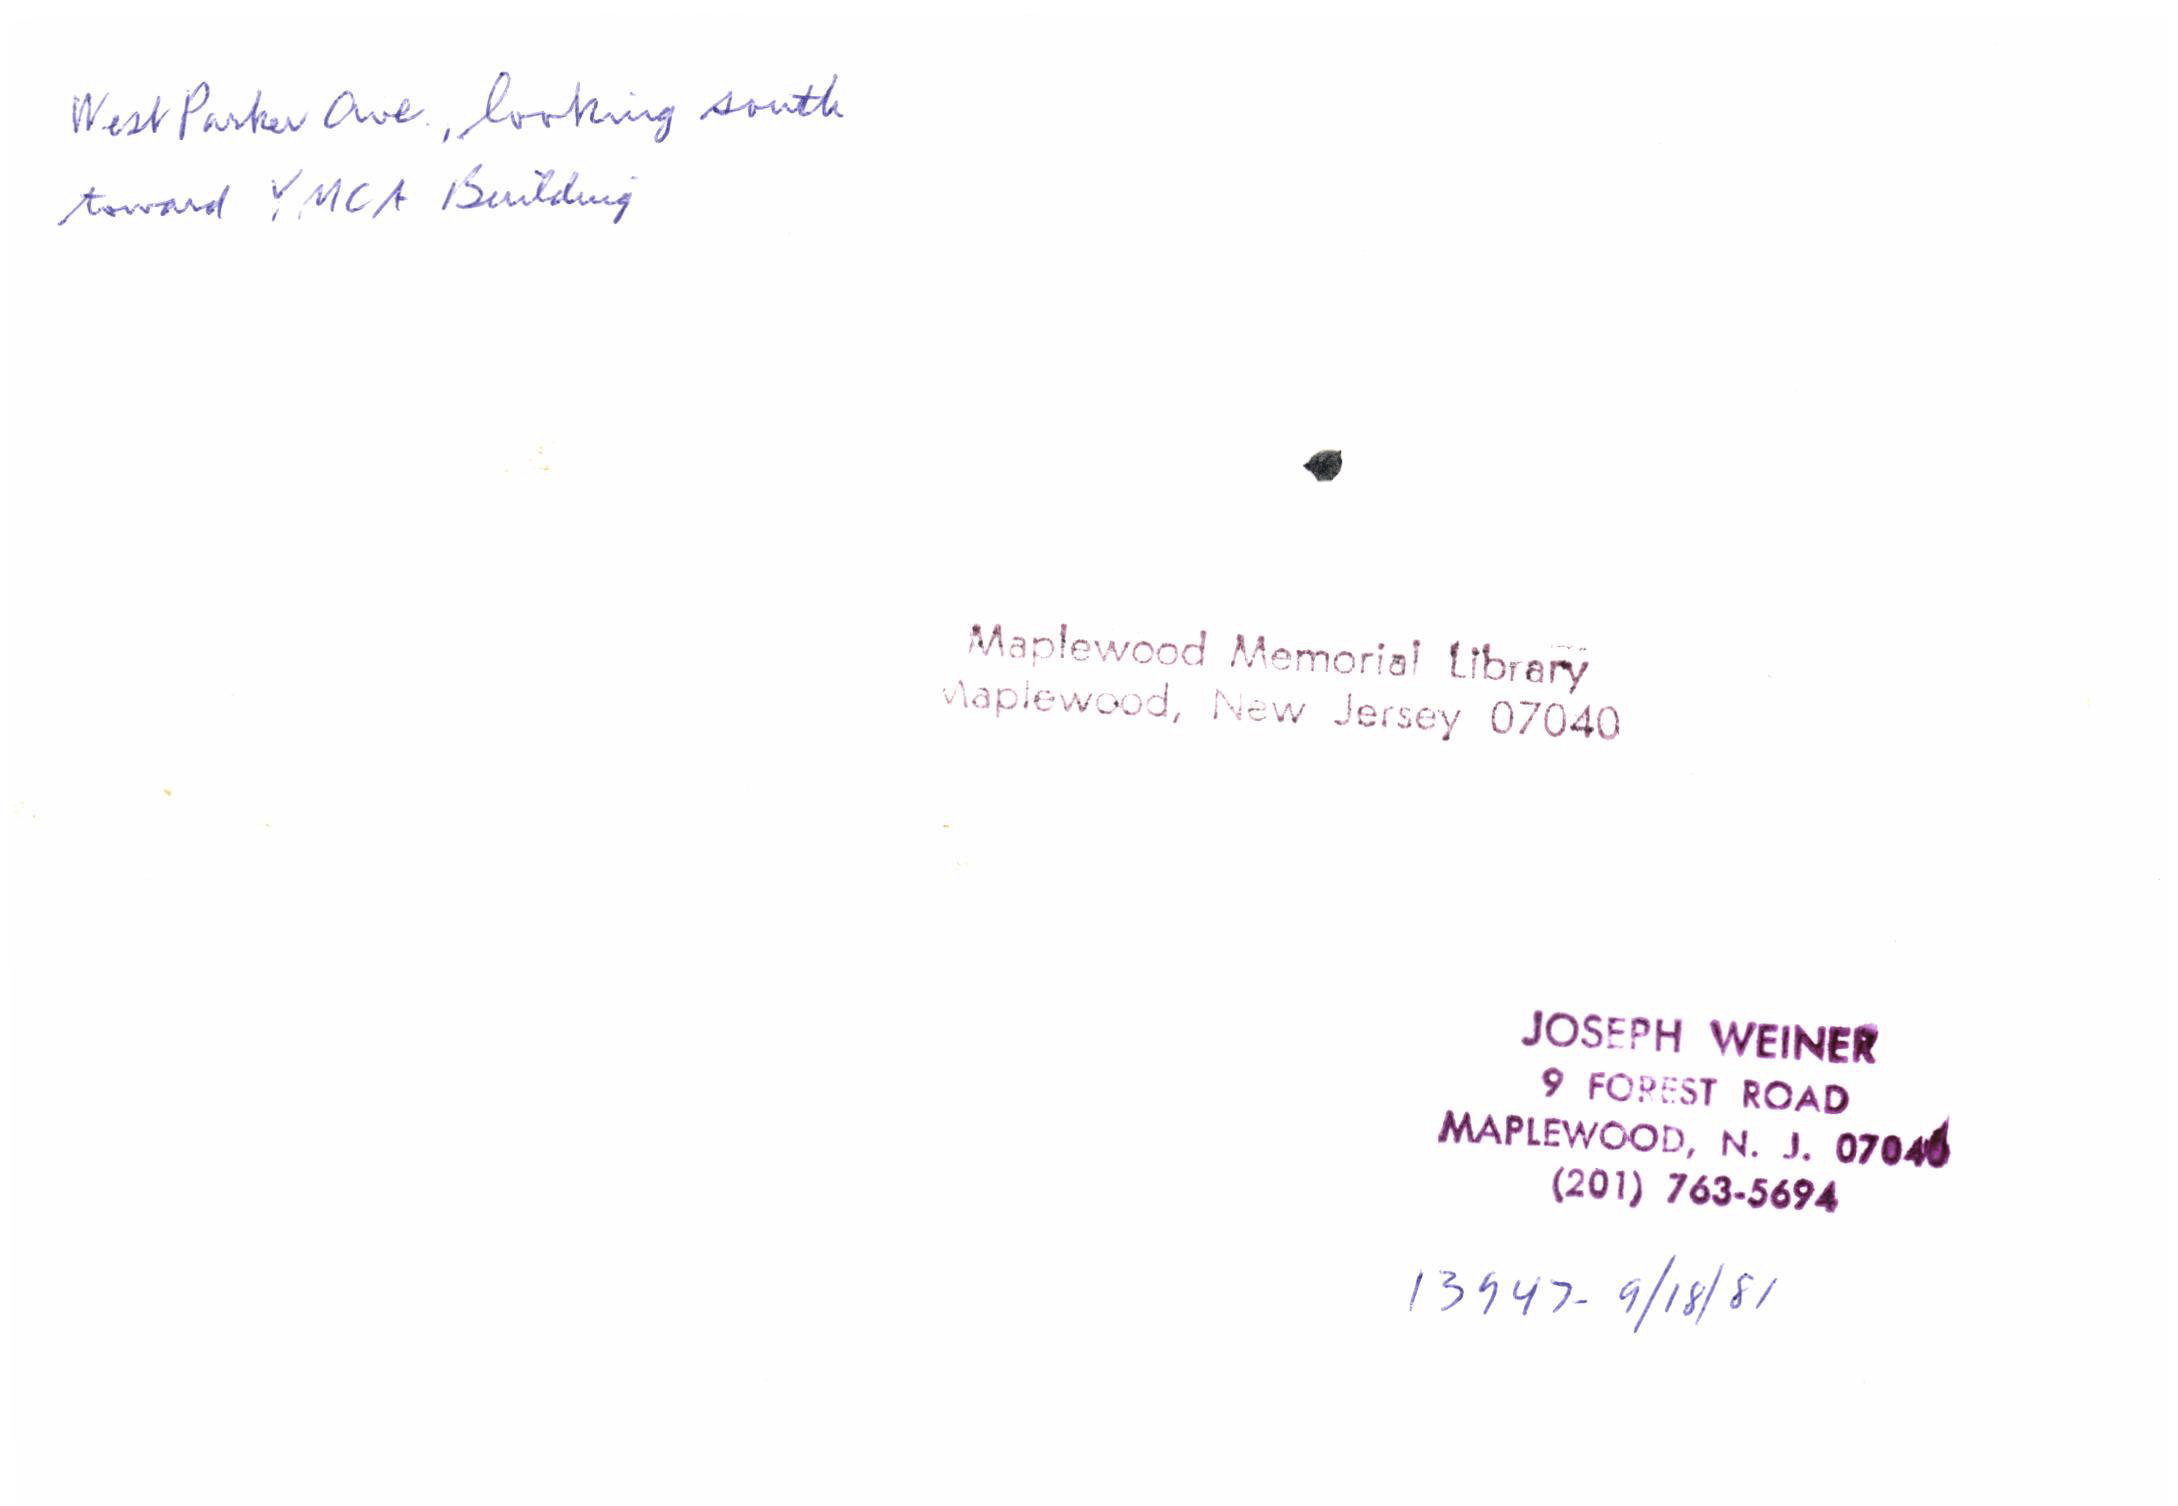 West Parker Ave., looking south
toward YMCA Building
Maplewood Memorial Library
Maplewood, New Jersey 07040
JOSEPH WEINER
9 FOREST ROAD
MAPLEWOOD, N. J. 07040
(201) 763-5694
13947- 9/18/81